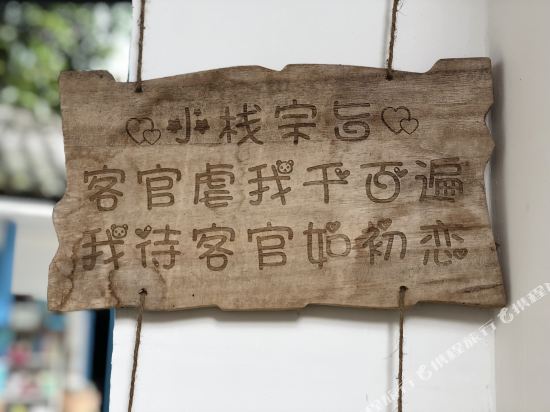 小栈宗旨
客官虐我千百遍
我待客官如初恋
携程旅行
携程旅行